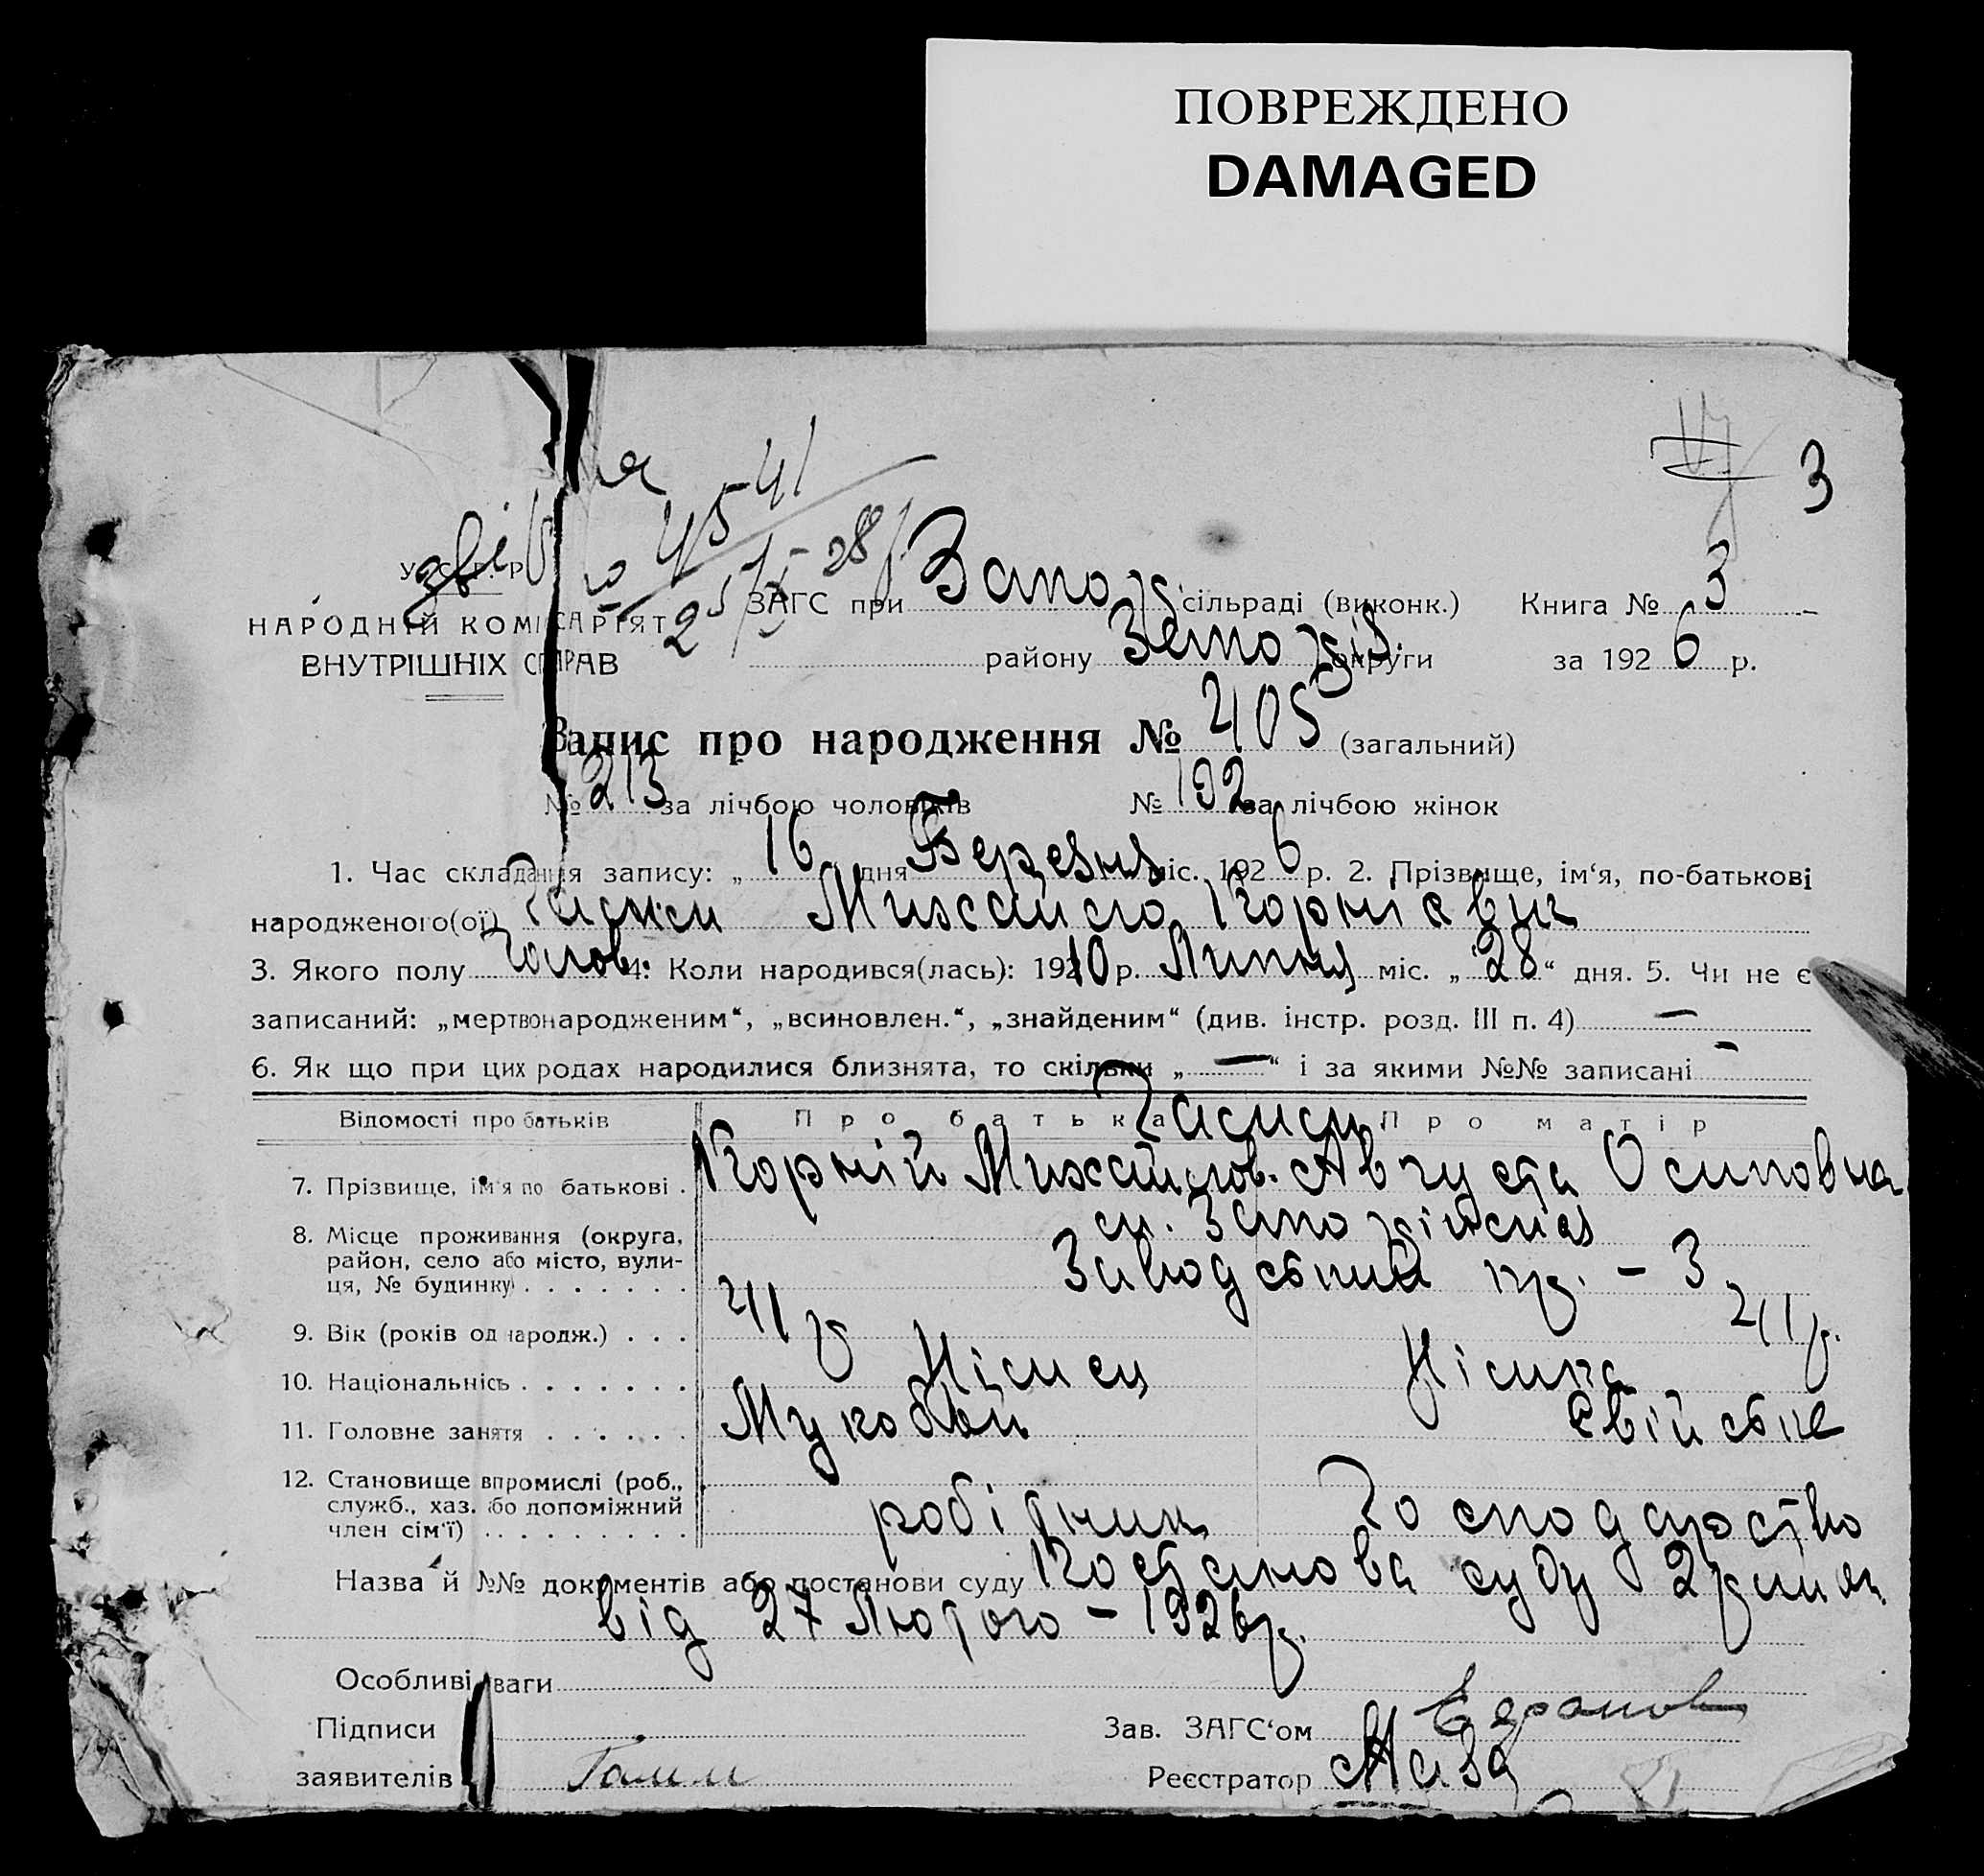 ПОВРЕЖДЕНО
DAMAGED
3
У. С. Р. Р.
4541
ЗАГС при Запор сільраді (виконк.) Книга № 3
НАРОДНІЙ КОМІСАРІЯТ
району Запоріз. округи за 1926 р.
ВНУТРІШНІХ СПРАВ
Запис про народження № 405 (загальний)
№ 213 за лічбою чоловіків № 192 за лічбою жінок
1. Час складання запису: „16 дня Березня міс. 1926 р. 2. Прізвище, ім‘я, по-батькові
народженого(ої) Михайло Корнієвич
3. Якого полу Чолов. 4. Коли народився(лась): 1910 р. Липня міс. „28“ дня. 5. Чи не є
записаний: „мертвонародженим“, „всиновлен.“, „знайденим“ (див. інстр. розд. III п. 4) —
6. Як що при цих родах народилися близнята, то скільки „—“ і за якими №№ записані —
Відомості про батьків Про батька Про матір
7. Прізвище, ім‘я по батькові . Корній Михайлов. Августа Осиповна
8. Місце проживання (округа,
район, село або місто, вули-
ця, № будинку) . . . . . . . Заводський пр. – 3
9. Вік (років од народж.) . . . 41 р 41 р.
10. Національнісь . . . . . . . Німец Німка
11. Головне заняття . . . . . . Мукобой Свійське
12. Становище в промислі (роб.,
служб., хаз. або допоміжний
член сім‘ї) . . . . . . . . . робідник Господарство
Назва й №№ документів або постанови суду Постанова суду 2
від 27 Лютого – 1926 р.
Особливі уваги
Підписи Зав. ЗАГС‘ом
заявителів Гамм Реєстратор